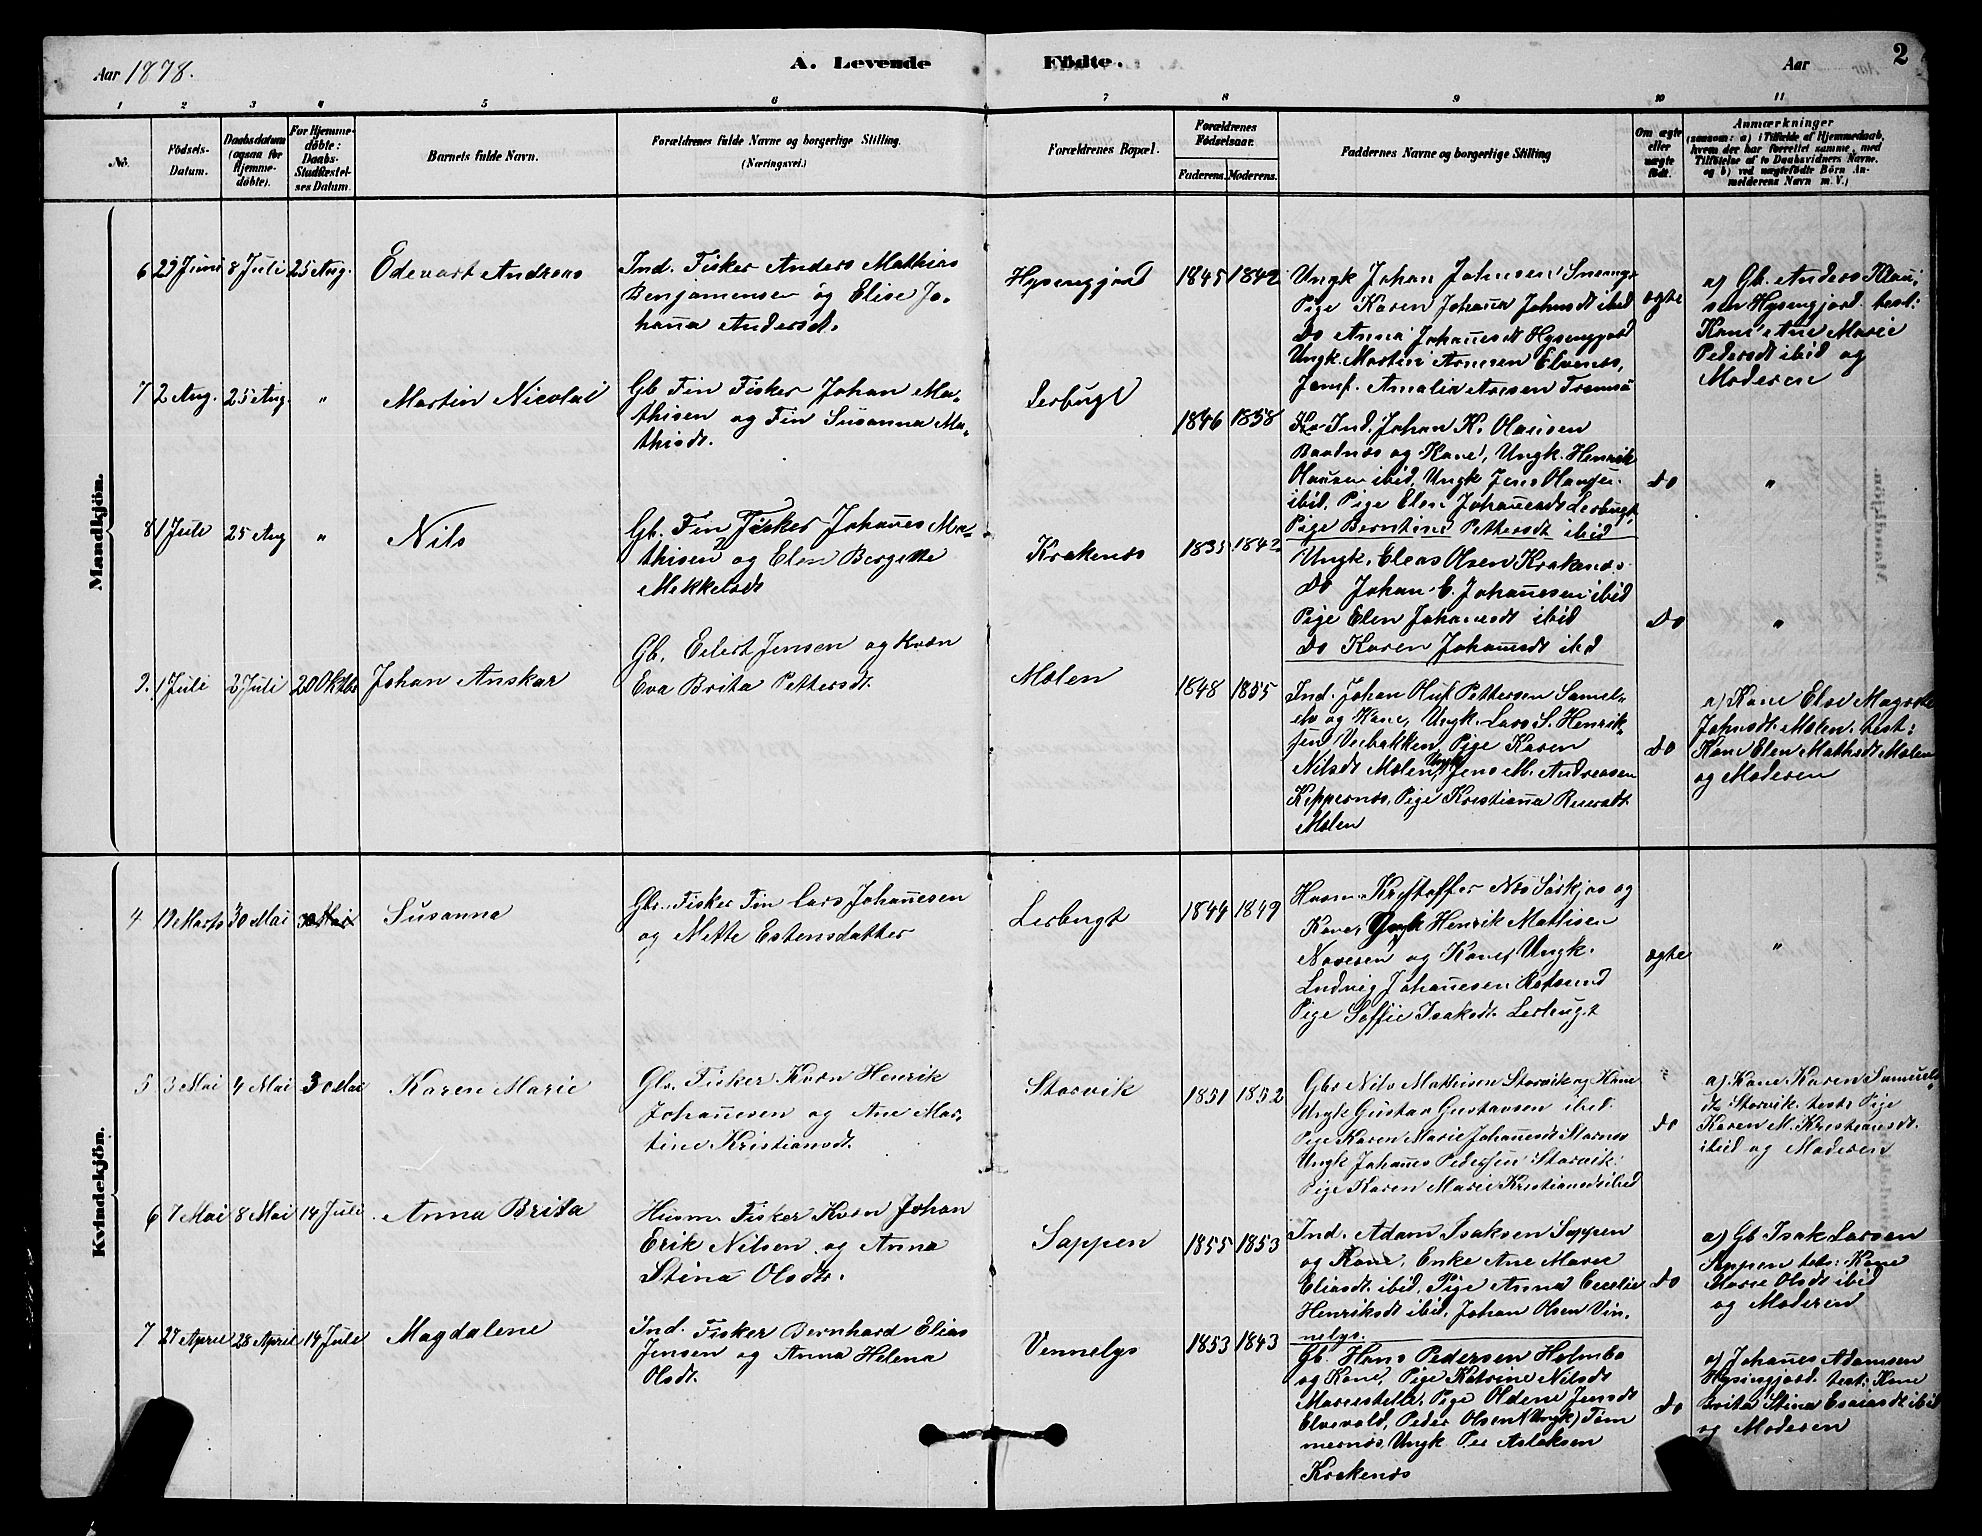 Aar 1878.
A. Levende Födte.
Aar
2
1 2 3 4 5 6 7 8 9 10 11
No.
Födsels-
Datum.
Daabsdatum
(ogsaa for
Hjemme-
döbte).
For Hjemme-
döbte:
Daabs-
Stadfæstel-
ses Datum.
Barnets fulde Navn.
Forældrenes fulde Navne og borgerlige Stilling.
(Næringsvei.)
Forældrenes Bopæl.
Forældrenes
Födselsaar.
Faderens. Moderens.
Faddernes Navne og borgerlige Stilling
Om ægte
eller
uægte
födt.
Anmærkninger
(saasom: a) i Tilfælde af Hjemmedaab,
hvem der har forrettet samme, med
Tilföielse af to Daabsvidners Navne,
og b) ved uægtefödte Börn An-
melderens Navn m. V.)
Mandkjön.
6 29 Juni 8 Juli 25 Aug. Edevart Andreas
Ind. Fisker Anders Mathias
Benjamensen og Elise Jo-
hana Andersdt.
Hysengjord
1845 1842
Ungk Johan Johnsen
Pige Karen Johana Johnsdt ibid
Do Anna Johanesdt Hysengjord
Ungk. Martin Arnesen Elvenes,
Jomf. Amalia Aresen Tromsö
ægte
a) Gb. Anders Klau-
sen Hysengjord. test:
Kone Ane Marie
Pedersdt ibid og
Moderen
7 2 Aug. 25 Aug. " Martin Nicolai
Gb Fin Fisker Johan Ma-
thisen og Fin Susanna Ma-
thisdt.
Lerbugt
1846 1858
Ind. Johan K. Olausen
Baadnes og Kone, Ungk. Henrik
Olausen ibid, Ungk Jens Olausen
ibid, Pige Elen Johanesdt Lerbugt,
Pige Berntine Pettersdt ibid
Do
"
8 1 Juli 25 Aug " Nils
Gb. Fin Fisker Johanes Ma-
thisen og Elen Bergette
Mekkelsdt
Krakenes
1835 1842
Ungk. Eleas Olsen Krakenes
Do Johan E. Johanesen ibid
Pige Elen Johanesdt ibid
Do Karen Johanesdt ibd
Do
"
9. 1 Juli 2 Juli 20 Oktbr Johan Anskar
Gb. Eilert Jensen og Kvæn
Eva Brita Pettersdt.
Molen
1848 1855
Ind. Johan Oluf Pettersen Samel-
elv og Kone, Ungk. Lars S. Henrik-
sen Veibakken, Pige Karen
Nilsdt Molen, Ungk Jens M. Andreasen
Keppernes, Pige Kristiana
Molen
Do
a) Kone Else Magrete
Johnsdt. Molen. test:
Kone Elen Mathisdt Molen
og Moderen
Kvindekjön.
4 12 Marts 30 Mai 30 Mai Susanna
Gbr. Fisker Fin Lars Johanesen
og Mette Estensdatter
Lerbugt
1844 1849
Husm Kristoffer Nils Sörkjos og
Kone, Ungk Henrik Mattisen
Navesen og Kone, Ungk.
Ludvig Johanesen Rotsund
Pige Soffie Isaksdt. Lerbugt
ægte
"
5 3 Mai 4 Mai 30 Mai Karen Marie
Gbr. Fisker Kvæn Henrik
Johanesen og Ane Mar-
tine Kristiansdt.
Storvik
1851 1852
Gbr Nils Mathisen Storvik og Kone
Ungk Gustav Gustavsen ibid.
Pige Karen Marie Johanesdt Stornes
Ungk Johanes Pedersen Storvik.
Pige Karen Marie Kristiansdt ibid
Do
a) Kone Karen Samuels-
dt. Storvik. test: Pige
Karen M. Kristiansdt.
ibid og Moderen
6 7 Mai 8 Mai 14 Juli Anna Brita
Husm. Fisker Kvæn Johan
Erik Nilsen og Anna
Stina Olsdtr.
Sappen
1855 1853
Ind. Adam Isaksen Sappen
og Kone, Enke Ane Marie
Eliasdt ibid, Pige Anna Cecelie
Henriksdt ibid, Johan Olsen Vin-
nelys.
Do
a) Gb Isak Larsen
Sappen tets: Kone
Marie Olsdt ibid
og Moderen
7 27 April 28 April 14 Juli Magdalene
Ind. Fisker Bernhard Elias
Jensen og Anna Helena
Olsdt.
Vennelys
1853 1843
Gb. Hans Pedersen Holmbo
og Kone, Pige Katrine Nilsdt
Mariestelle, Pige Oldene Jensdt
Elvevold, Peder Olsen (Ungk) Töm
mernes, Ungk Per Aslaksen
Krakenes
Do
a) Johanes Adamsen
Hysingjord. test: Kone
Brita Stina Esaiasdt ibid
og Moderen